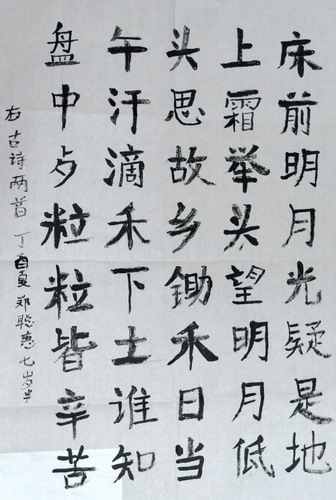 床前明月光疑是地
上霜举头望明月低
头思故乡锄禾日当
午汗滴禾下土谁知
盘中歺粒粒皆辛苦
右古诗两首丁酉夏郑聪惠七岁半